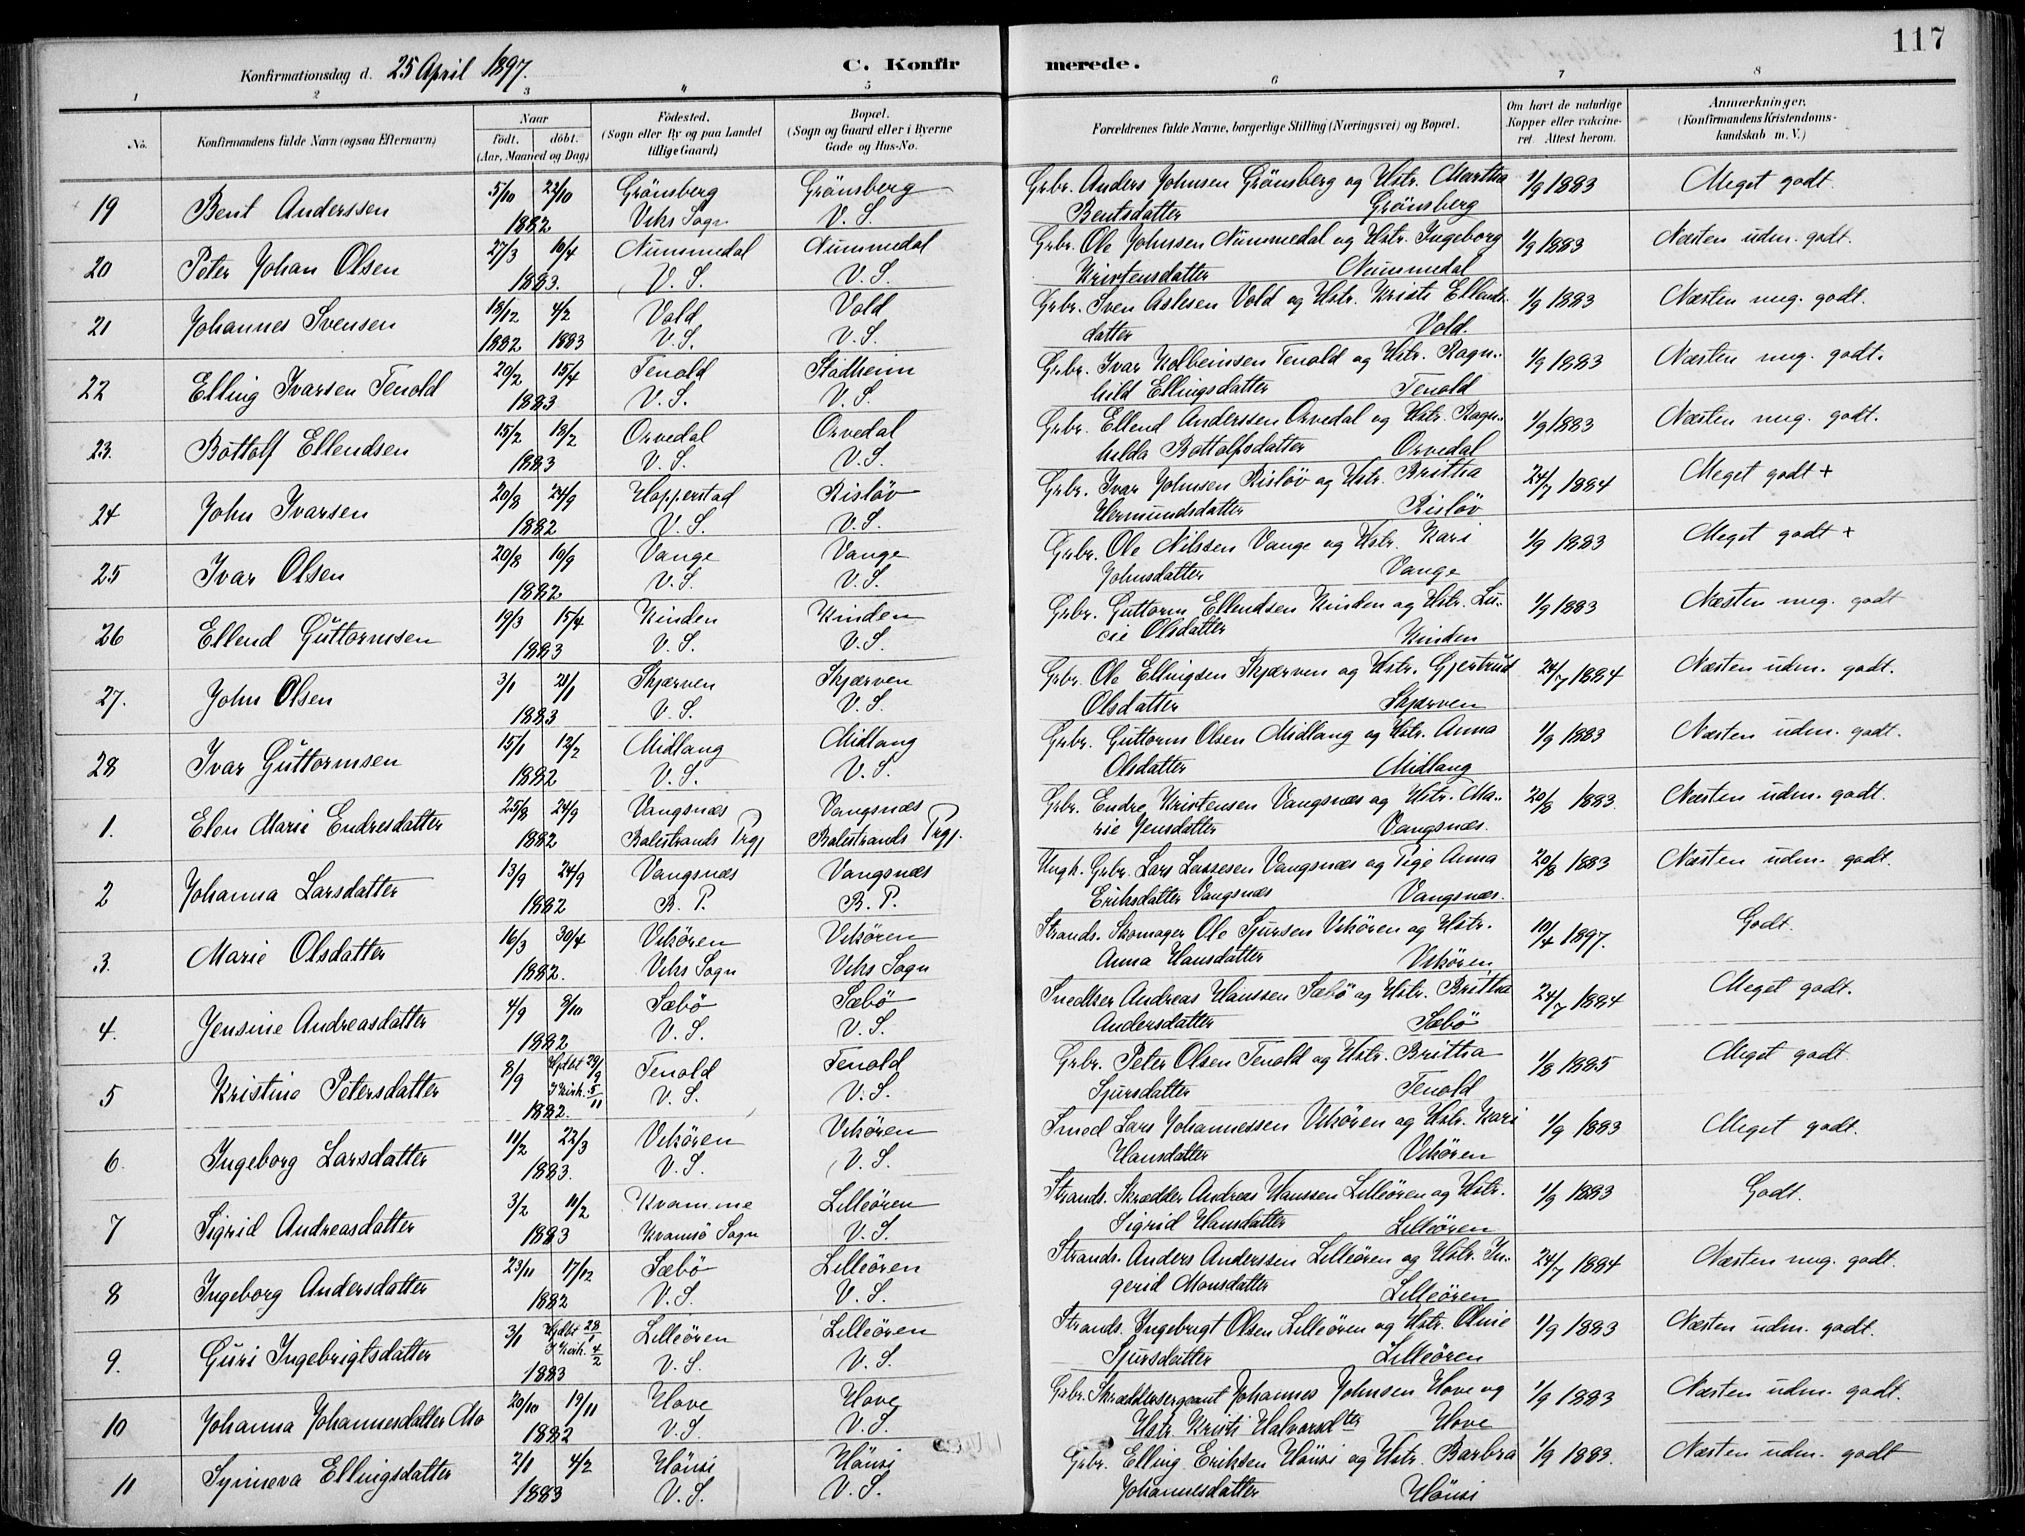 117
Konfirmationsdag d. 25 April 1897.
C. Konfirmerede.
1 2 3 4 5 6 7 8
No. Konfirmandens fulde Navn (ogsaa Efternavn) Naar Födt. döbt. (Aar, Maaned og Dag) Födested. (Sogn eller By og paa Landet tillige Gaard) Bopæl. (Sogn og Gaard eller i Byerne Gade og Hus-No. Forældrenes fulde Navne, borgerlige Stilling (Næringsvei) og Bopæl. Om havt de naturlige Kopper eller vakcineret Attest herom. Anmærkninger, (Konfirmandens Kristendomskundskab m. V.)
19 Bent Anderssen 5/10 22/10 Grönsberg Grönsberg Grbr. Anders Johnsen Grönsberg og Hstr. Martha 1/9 1883 Meget godt.
1882 Viks Sogn V. S. Bentsdatter Grönsberg
20 Peter Johan Olsen 27/3 16/4 Nummedal Nummedal Grbr. Ole Johnsen Nummedal og Hstr. Ingeborg 1/9 1883 Næsten udm. godt.
1883. V. S. V. S. Kristensdatter Nummedal
21 Johannes Svensen 18/12 4/2 Vold Vold Grbr. Sven Aslesen Vold og Hstr. Kristi Ellends- 1/9 1883 Næsten mg. godt.
1882 1883 V. S. V. S. datter Vold.
22 Elling Ivarsen Tenold 20/2 15/4 Tenold Stadheim Grbr. Ivar Kolbeinsen Tenold og Hstr. Ragn- 1/9 1883 Næsten mg. godt.
1883 V. S. V. S. hild Ellingsdatter Tenold
23. Bottolf Ellendsen 15/2 18/2 Orvedal Orvedal Grbr. Ellend Anderssen Orvedal og Hstr. Ragn- 1/9 1883 Næsten mg. godt.
1883 V. S. V. S. hilda Bottolfsdatter Orvedal
24 John Ivarsen 20/8 24/9 Hopperstad Risløv Grbr. Ivar Johnsen Risløv og Hstr. Brittha 24/7 1884 Meget godt +
1882 V. S. V. S. Hermundsdatter Risløv
25 Ivar Olsen 20/8 10/9 Vange Vange Grbr. Ole Nilssen Vange og Hstr. Kari 1/9 1883 Meget godt +
1882 V. S. V. S. Johnsdatter Vange
26 Ellend Guttormsen 19/3 15/4 Kinden Kinden Grbr. Guttorm Ellendsen Kinden og Hstr. Lu- 1/9 1883 Næsten mg. godt
1883 V. S. V. S. cie Olsdatter Kinden
27. John Olsen 3/1 21/1 Skjærven Skjærven Grbr. Ole Ellingsen Skjærven og Hstr. Gjertrud 24/7 1884 Næsten udm. godt.
1883 V. S. V. S. Olsdatter Skjærven
28 Ivar Guttormsen 15/1 12/2 Midlang Midlang Grbr. Guttorm Olsen Midlang og Hstr. Anna 1/9 1883 Næsten udm. godt.
1882 V. S. V. S. Olsdatter Midlang
1. Elen Marie Endresdatter 25/8 24/9 Vangsnæs Vangsnæs Grbr. Endre Kristensen Vangsnæs og Hstr. Ma- 20/8 1883. Næsten udm. godt.
1882 Balestrands Prgj Balestrands Prgj. rie Jensdatter Vangsnæs.
2 Johanna Larsdatter 13/9 24/9 Vangsnæs Vangsnæs Ungk. Grbr. Lars Lassesen Vangsnæs og Pige Anna 20/8 1883 Næsten udm. godt.
1882 B. P. B. P. Eriksdatter Vangsnæs Vangsnæs.
3. Marie Olsdatter 16/3 30/4 Vikören Vikören Strands. Skomager Ole Sjursen Vikören og Hstr. 10/4 1897. Godt.
1882. Viks Sogn Viks Sogn Anna Hansdatter Vikören
4. Jensine Andreasdatter 4/9 8/10 Sæbö Sæbö Snedker Andreas Hanssen Sæbö og Hstr. Brittha 24/7 1884 Meget godt.
1882 V. S. V. S. Andersdatter Sæbö
5 Kristine Petersdatter 8/9 Hjdbt 29/9 Tenold Tenold Grbr. Peter Olsen Tenold og Hstr. Brittha 1/8 1885 Meget godt
1882. I Kirk. 5/11 V. S. V. S. Sjursdatter Tenold
6. Ingeborg Larsdatter 11/2 22/3 Vikören Vikören Smed Lars Johannessen Vikören og Hstr. Kari 1/9 1883 Meget godt.
1883. V. S. V. S. Hansdatter Vikören
7 Sigrid Andreasdatter 3/2 11/2 Kvamme Lilleören Strands. Skrædder Andreas Hanssen Lilleören og Hstr. 1/9 1883 Godt.
1883 Kvamsö Sogn V. S. Sigrid Hansdatter Lilleören
8 Ingeborg Andersdatter 23/11 17/12 Sæbö Lilleören Strands. Anders Anderssen Lilleören og Hstr. In- 24/7 1884 Næsten mg. godt.
1882 V. S. V. S. gerid Monsdatter Lilleören
9. Guri Ingebrigtsdatter 3/1 Hjdbt 28/1 Lilleören Lilleören Strands. Ingebrigt Olsen Lilleören og Hstr. Oline 1/9 1883 Næsten udm. godt.
1883 I Kirk. 4/2 V. S. V. S. Sjursdatter Lilleören
10 Johanna Johannesdatter Mo 20/10 19/11 Hove Hove Grbr. Skræddersergeant Johannes Johnsen Hove og 1/9 1883 Næsten udm. godt.
1882 V. S. V. S. Hstr. Kristi Halvorsdter Hove
11 Synneva Ellingsdatter 2/1 4/2 Hönsi Hönsi Grbr. Elling Eriksen Hönsi og Hstr. Barbra 1/9 1883. Næsten udm. godt
1883 V. S. V. S. Johannesdatter Hönsi